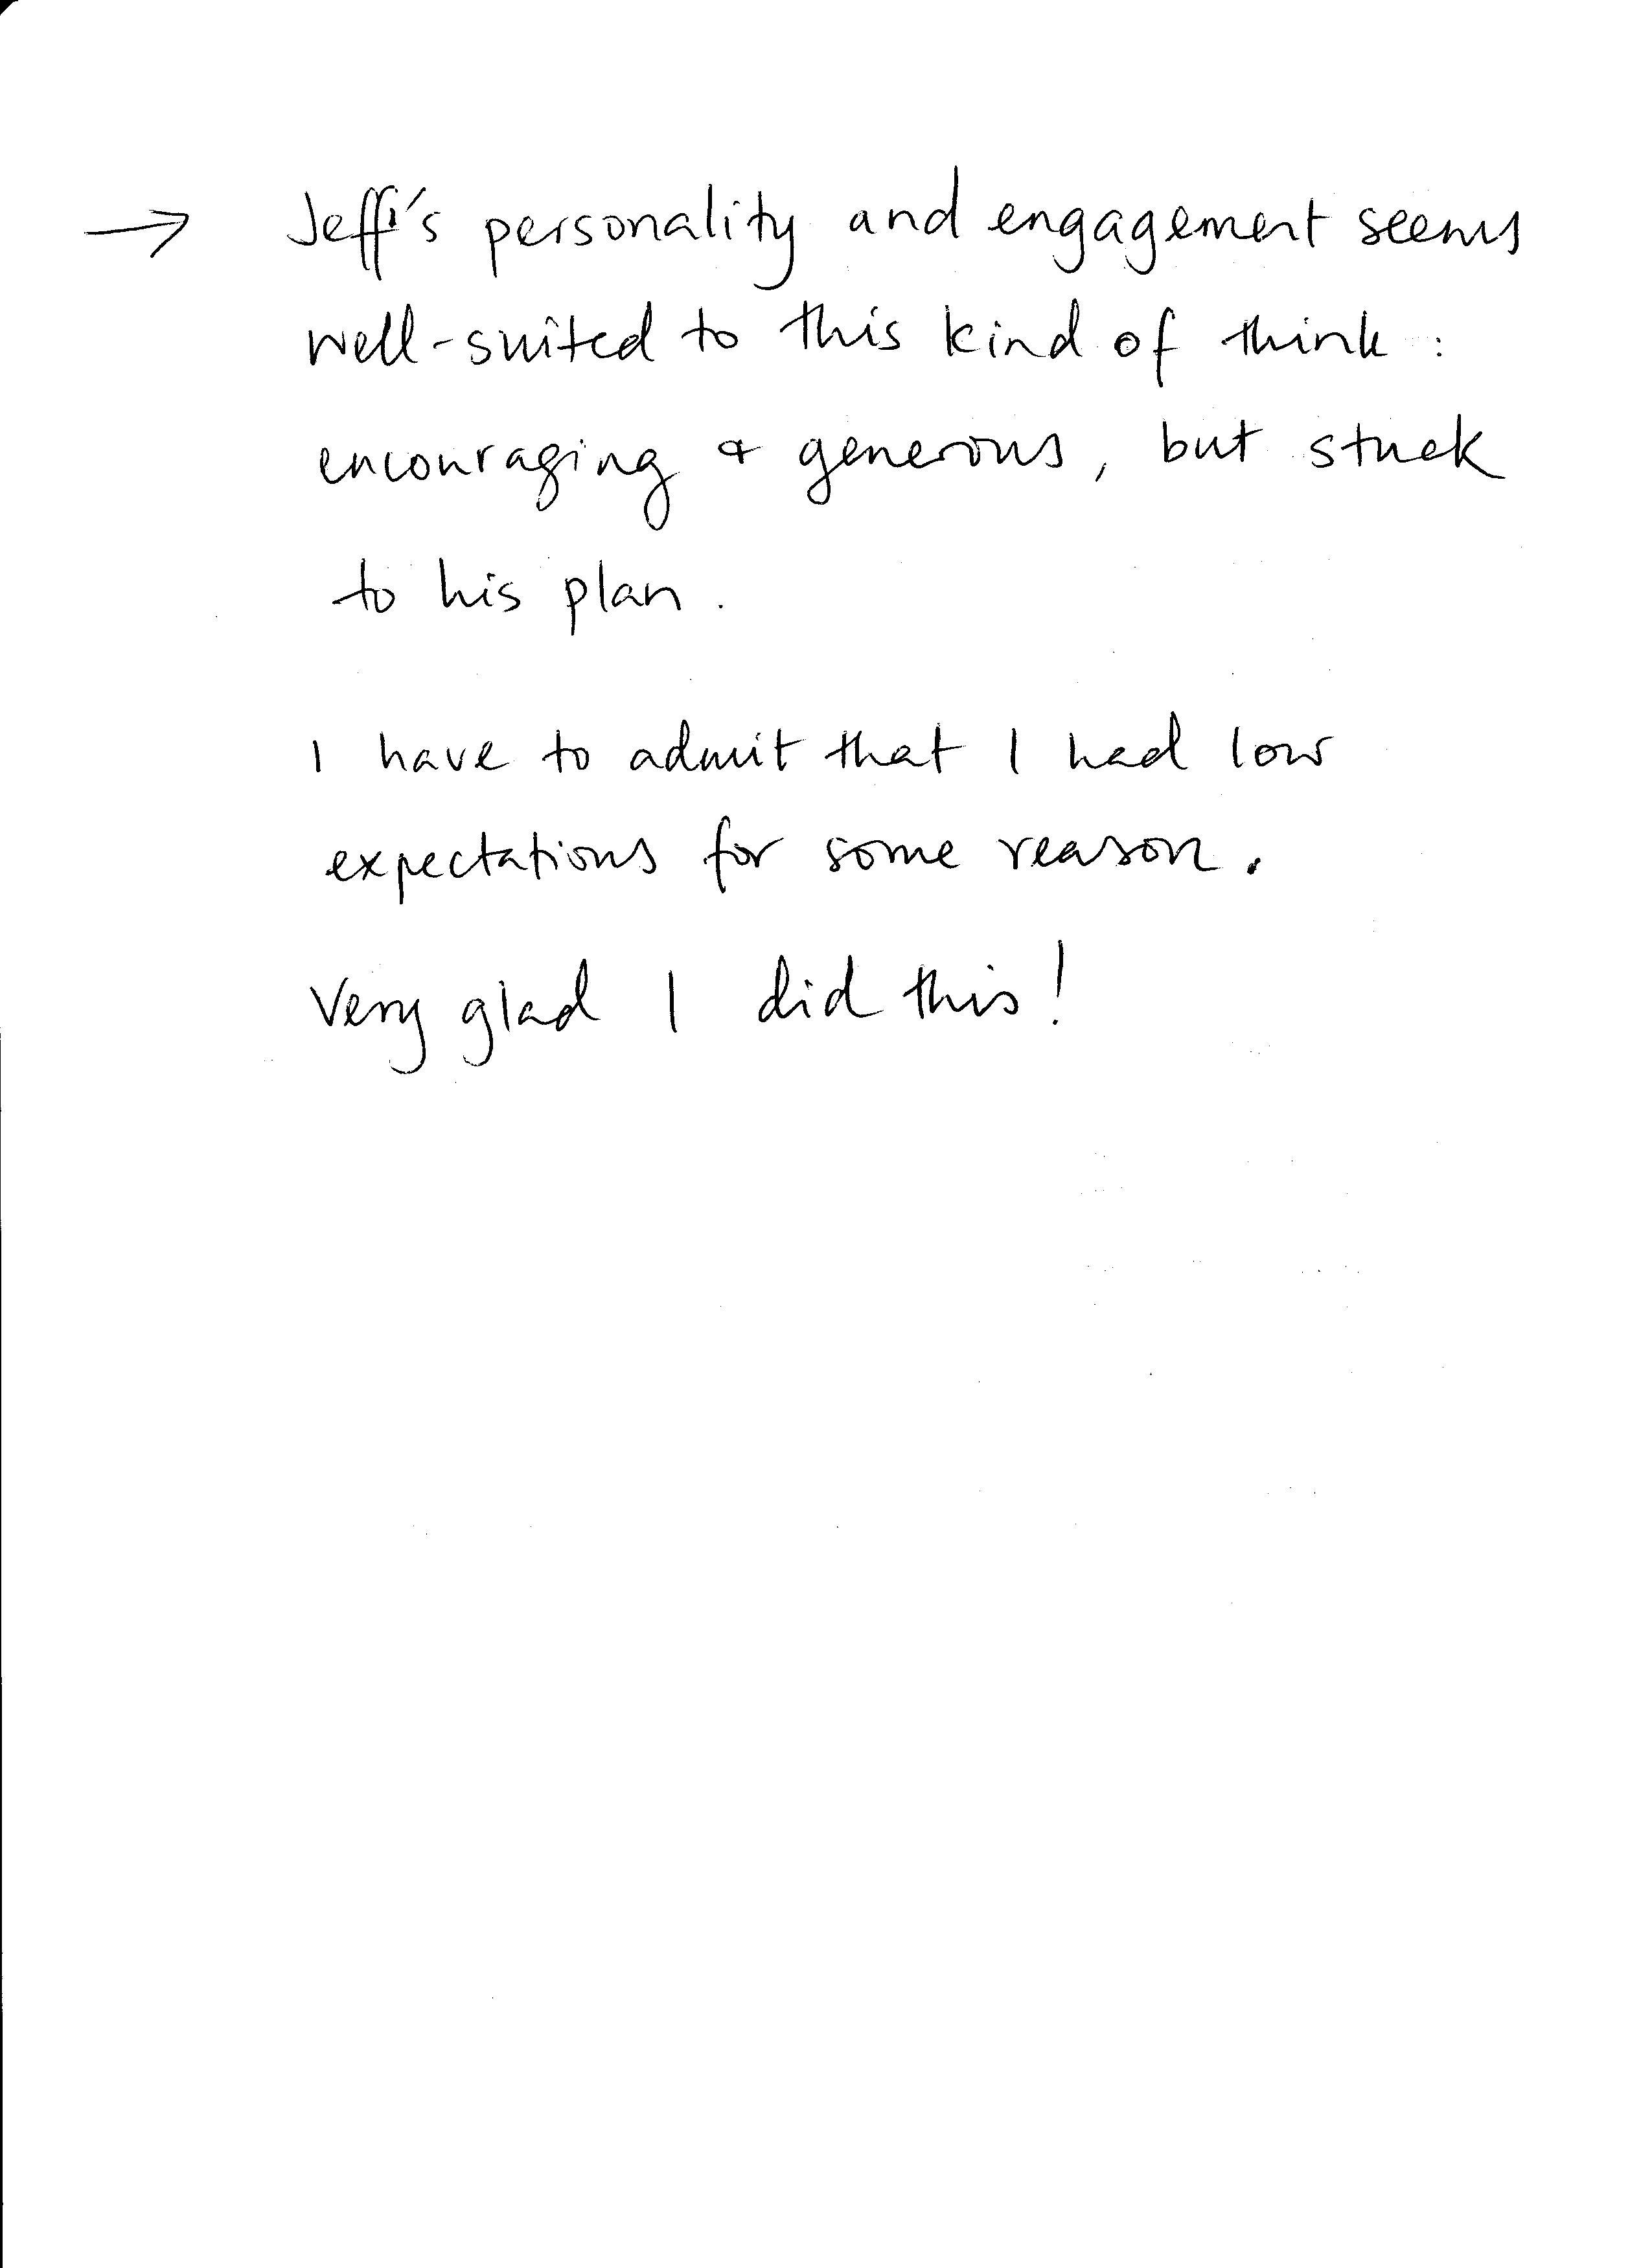 → Jeff's personality and engagement seems
well-suited to this kind of think :
encouraging & generous, but stuck
to his plan.
I have to admit that I had low
expectations for some reason.
Very glad I did this!